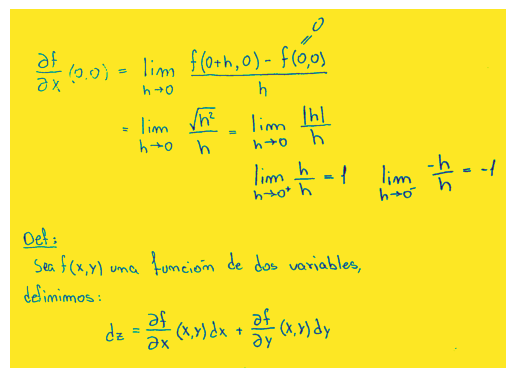 0
∂f/∂x (0,0) = lim h→0 f(0+h,0) - f(0,0) / h
= lim h→0 √h² / h = lim h→0 |h| / h
lim h→0⁺ h/h = 1 lim h→0⁻ -h/h = -1
Def:
Sea f(x,y) una función de dos variables,
definimos:
dz = ∂f/∂x (x,y) dx + ∂f/∂y (x,y) dy